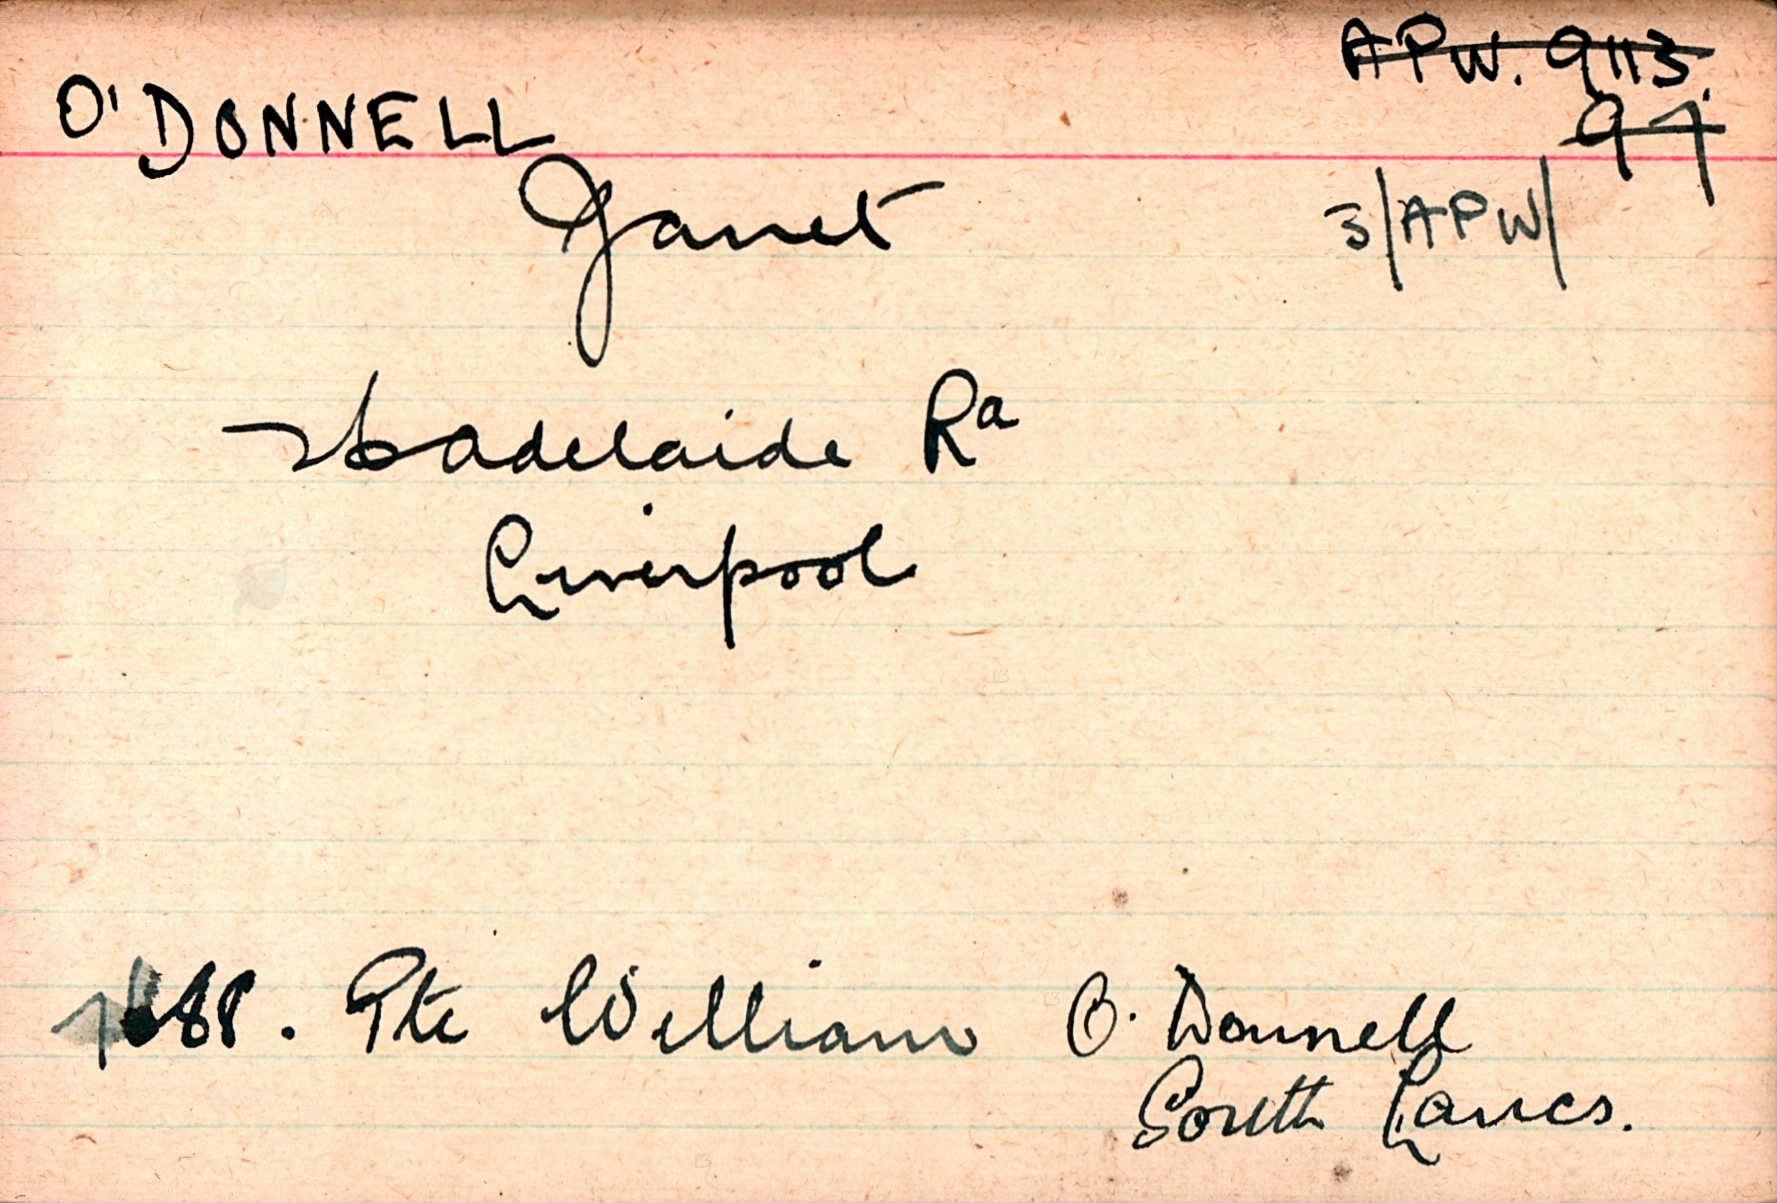 A P W. 9113.
O'DONNELL
97
Janet
3/APW/
Adelaide Rd
Liverpool
Pte William O'Donnell
South Lancs.